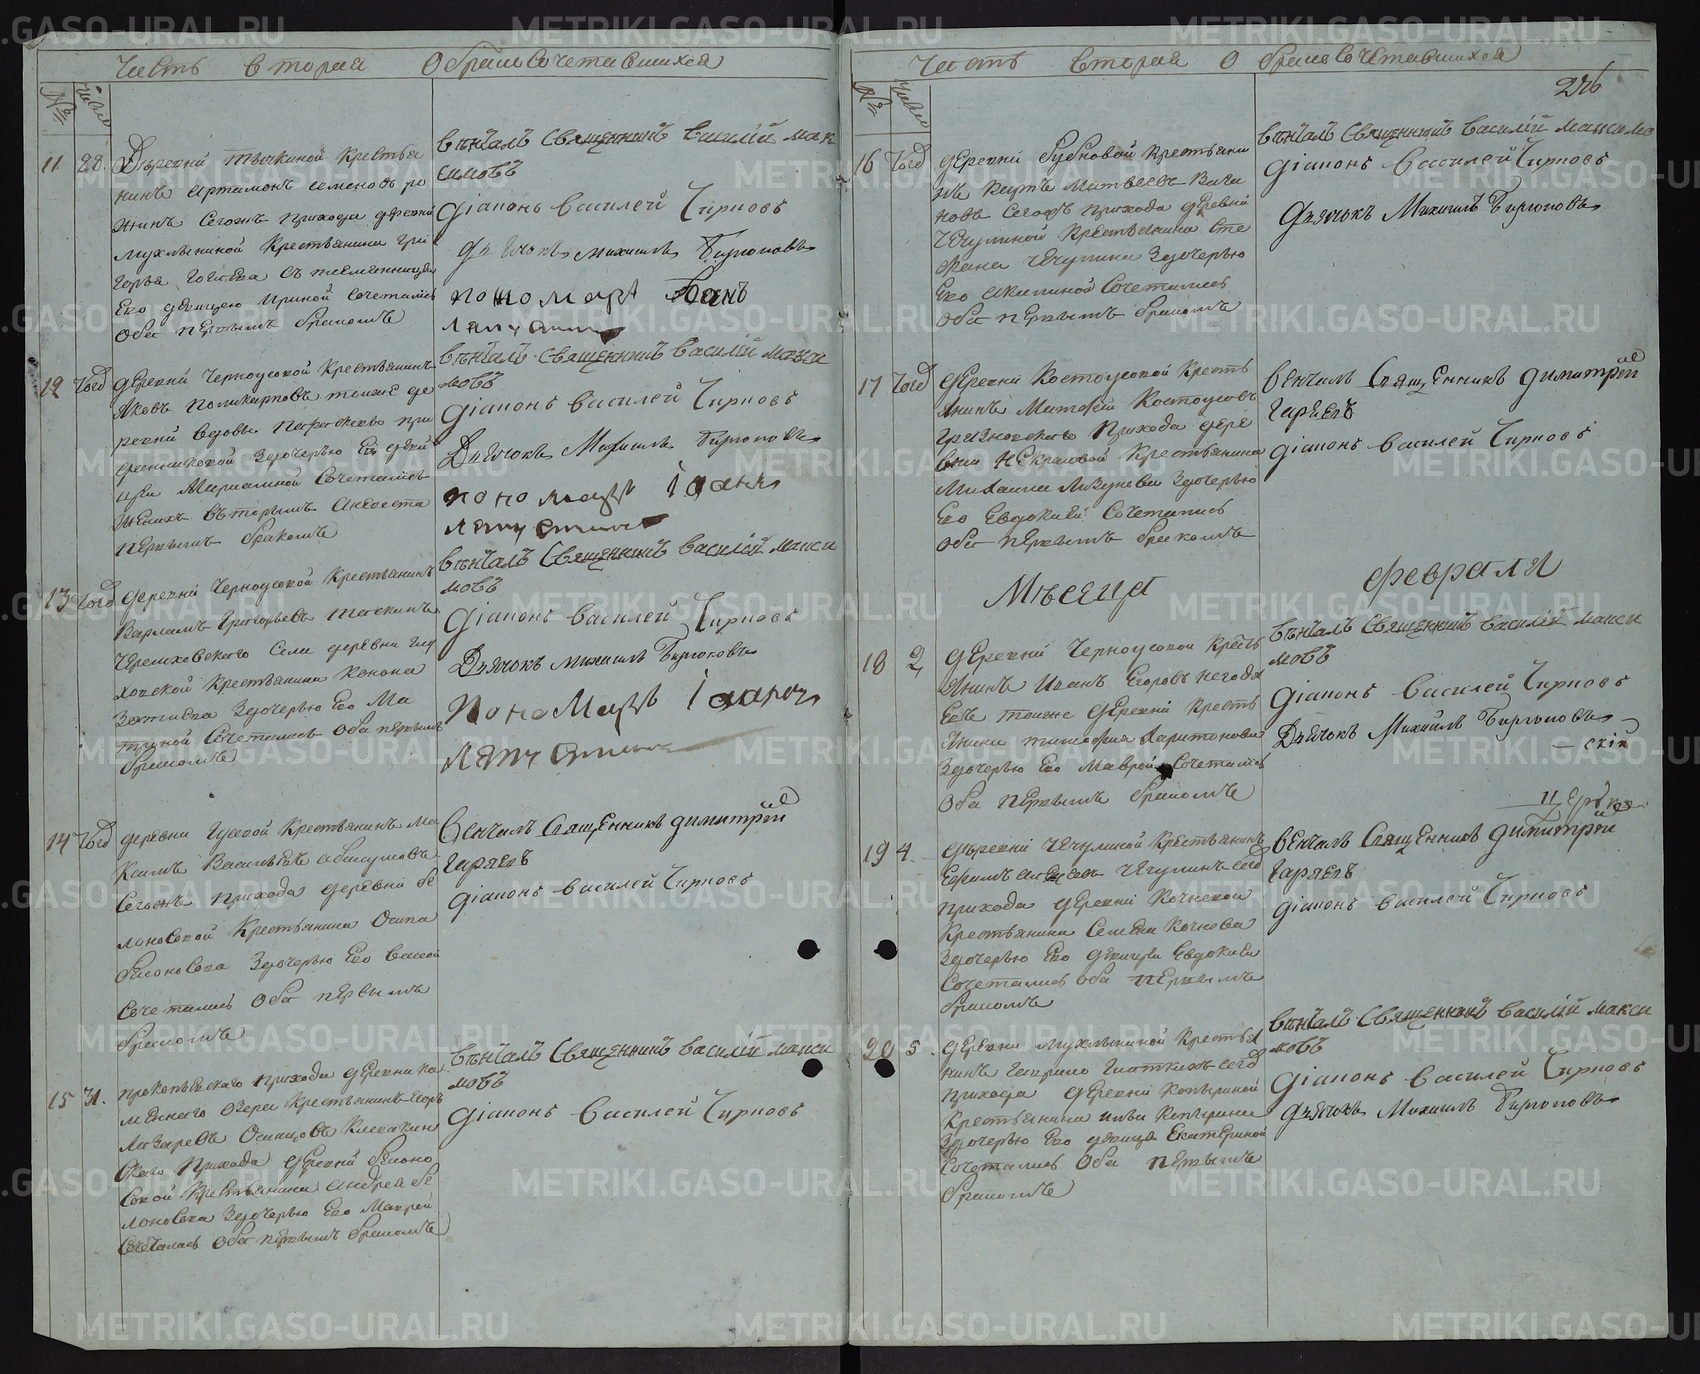 Часть вторая О бракосочетавшихся
№ число
11 28. Деревни Тычкиной крестья
нинъ Артамонъ Семеновъ
сегожъ прихода деревни
Мухлыниной крестьянина Гри
горья съ племянницею
Его девицею Ириной сочетались
оба первымъ бракомъ
вѣнчалъ Священникъ Василій Мак
симовъ
діаконъ Василей Чирновъ
дьячокъ Михаилъ Бирюковъ
пономарь Иоанъ
Ляпустинъ
12 того деревни Черноусовой крестьянинъ
Яковъ Поликарповъ тоияже де
ревни вдовы
здочерью Ея деви
цеи Марианной сочетались
женихъ вторымъ а невеста
первымъ бракомъ
вѣнчалъ Священникъ Василій Макси
мовъ
діаконъ Василей Чирновъ
Дьячокъ Михаилъ Бирюковъ
пономарь Іоанъ
Ляпустинъ
13 того деревни Черноусовой крестьянинъ
Варламъ Григорьевъ
села деревни
крестьянина Конона
здочерью Его Ма
троной сочетались оба первымъ
бракомъ
вѣнчалъ Священникъ Василій Макси
мовъ
діаконъ Василей Чирновъ
Дьячокъ Михаилъ Бирюковъ
Пономарь Іоаннъ
Ляпустинъ
14 того деревни Гусевой крестьянинъ Ма
ксимъ Васильевъ
сегожъ прихода деревни Бе
лоносовой крестьянина Осипа
Белоносова здочерью Его Вассой
сочетались оба первымъ
бракомъ
Венчалъ Священникъ Димитрий
Гаряевъ
діаконъ Василей Чирновъ
15 31. Прокопьевскаго прихода деревни Ка
меннаго Озера крестьянинъ Егоръ
Лазаревъ Осинцовъ Клевакин
скаго прихода деревни Белоно
совой крестьянина Андрея Бе
лоносова здочерью Его Маврой
сочетались оба первымъ бракомъ
вѣнчалъ Священникъ Василій Макси
мовъ
діаконъ Василей Чирновъ
Часть вторая О бракосочетавшихся
№ число
16 того деревни Бубновой крестьяни
нъ Матвеевъ
сегожъ прихода деревни
Чечулиной крестьянина Сте
фана Чечулина здочерью
Его Акилиной сочетались
оба первымъ бракомъ
вѣнчалъ Священникъ Василій Максимо
діаконъ Василей Чирновъ
дьячокъ Михаилъ Бирюковъ
17 того деревни Костоусовой кресть
янинъ Матфей Костоусовъ
Грязновскаго прихода дере
вни Некрасовой крестьянина
Михаила здочерью
Его Евдокией сочетались
оба первымъ бракомъ
Венчалъ Священникъ Димитрий
Гаряевъ
діаконъ Василей Чирновъ
Мѣсяца февраля
18 2 деревни Черноусовой кресть
янинъ Иванъ Егоровъ Негодя
евъ тояже деревни кресть
янина Тимофея Харитонова
здочерью Его Маврой сочетались
оба первымъ бракомъ
вѣнчалъ Священникъ Василій Макси
мовъ
діаконъ Василей Чирновъ
Дьячокъ Михайлъ Бирюковъ
19 4. деревни Чечулиной крестьянинъ
Ефремъ Чечулинъ сего
прихода деревни Кочневой
крестьянина Семена Кочнева
здочерью Его девицей Евдокией
сочетались оба первымъ
бракомъ
Венчалъ Священникъ Димитрий
Гаряевъ
діаконъ Василей Чирновъ
20 5. деревни Мухлыниной крестья
нинъ Гаврило сего
прихода деревни Копыриной
крестьянина Ильи Копырина
здочерью Его девицей Екатериной
сочетались оба первымъ
бракомъ
вѣнчалъ Священникъ Василій Макси
мовъ
діаконъ Василей Чирновъ
дьячокъ Михаилъ Бирюковъ
METRIKI.GASO-URAL.RU